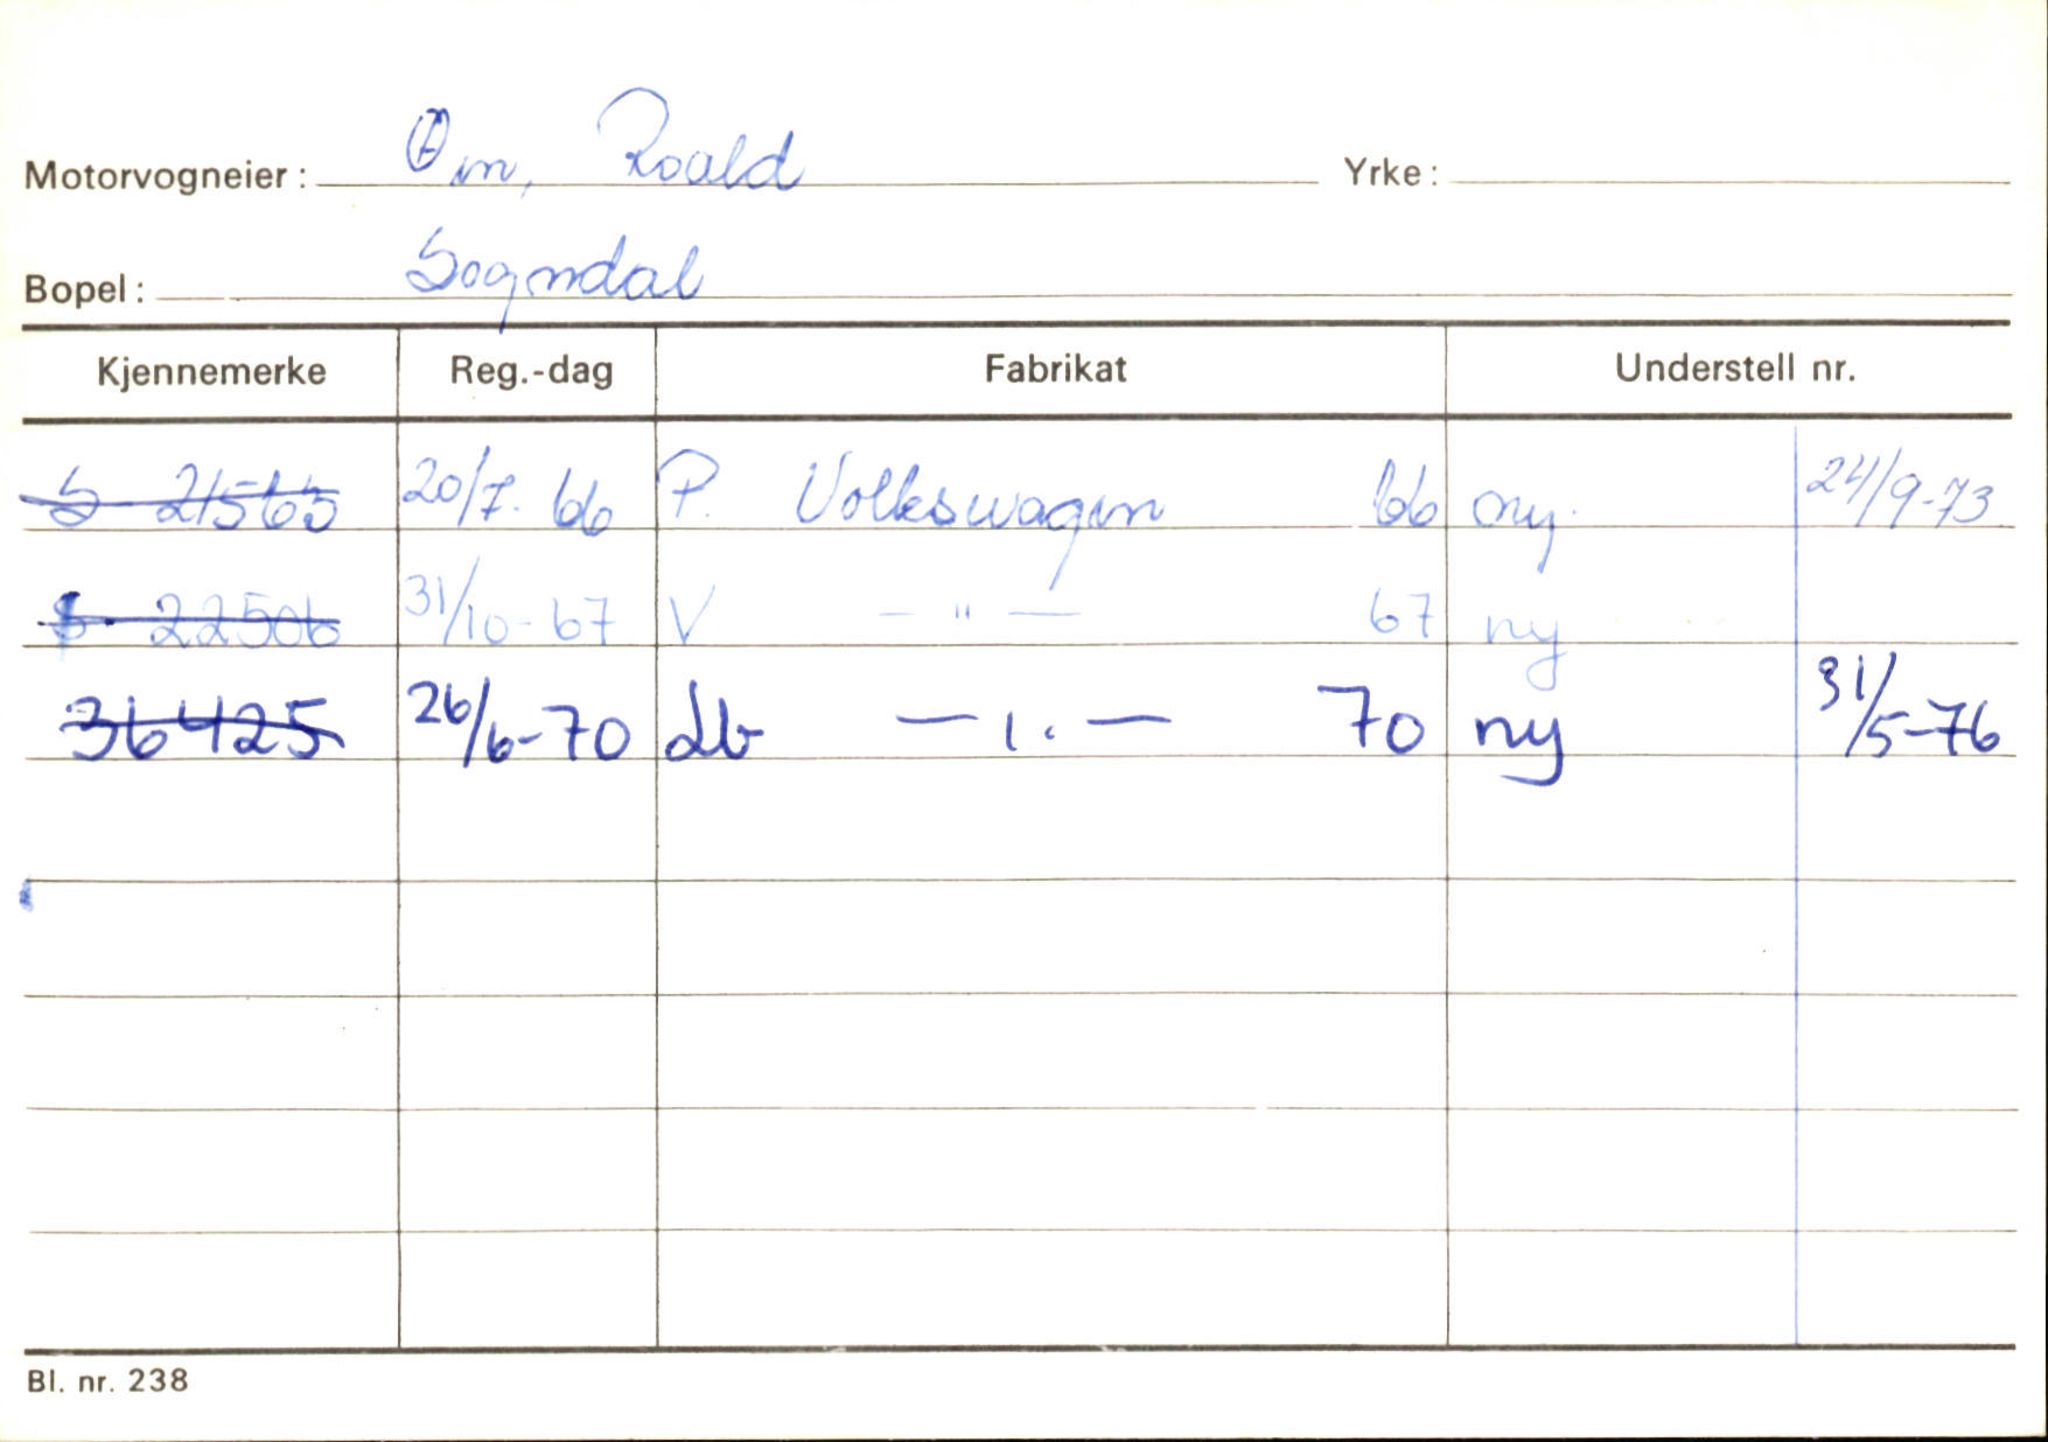 Motorvogneier: Øin, Roald Yrke:
Bopel: Sogndal
Kjennemerke Reg.-dag Fabrikat Understell nr.
S 21565 20/7. 66 P. Volkswagen 66 ny. 24/9-73
S- 22506 31/10-67 V — " — 67 ny
36425 26/6-70 Lb — " — 70 ny 31/5-76
Bl. nr. 238